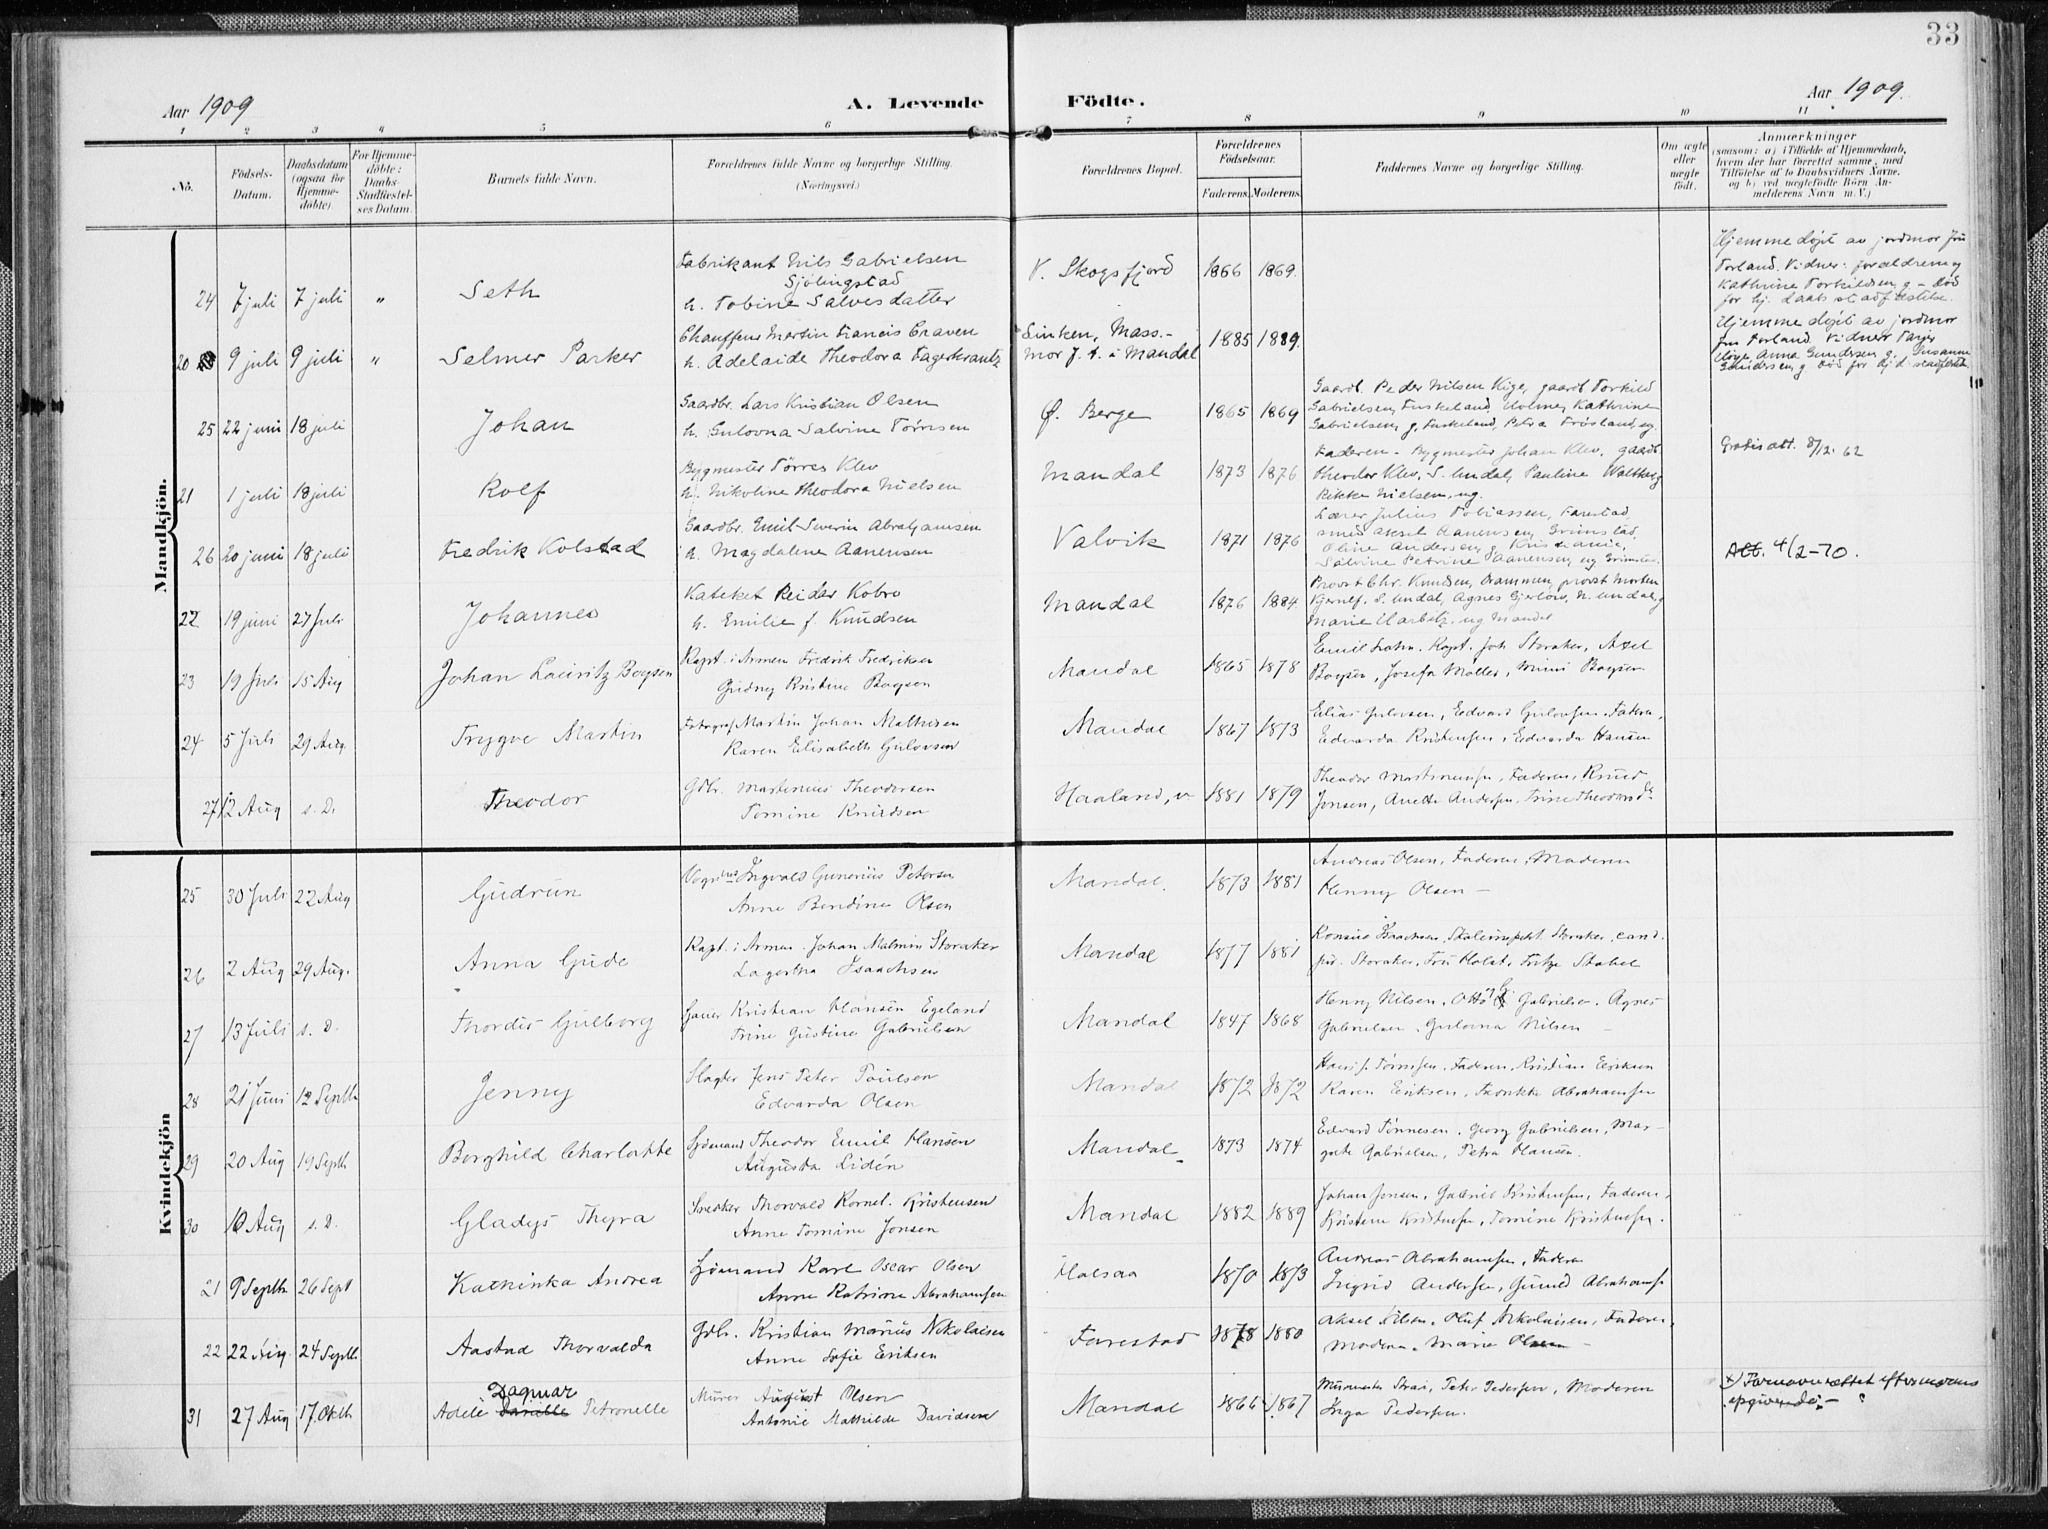 33
Aar 1909
A. Levende
Födte.
Aar 1909.
1 2 3 4 5 6 7 8 9 10 11
No.
Födsels-Datum.
Daabsdatum (ogsaa for Hjemme-döbte).
For Hjemme-döbte: Daabs-Stadfæstel-ses Datum.
Barnets fulde Navn.
Forældrenes fulde Navne og borgerlige Stilling. (Næringsvei.)
Forældrenes Bopæl.
Forældrenes Födselsaar.
Faderens. Moderens.
Faddernes Navne og borgerlige Stilling.
Om ægte eller uægte födt.
Anmærkninger
(saasom: a) i Tilfælde af Hjemmedaab, hvem der har forrettet samme, med Tilföielse af to Daabsvidners Navne, og b) ved uægtefödte Börn An-melderens Navn m. V.)
Mandkjön.
24 7 juli 7 juli " Seth
Fabrikant Nils Gabrielsen
Sjölingstad
h. Tobine Salvesdatter
V. Skogsfjord 1866 1869.
Hjemmedøpt av jordmor fru
Torland. Vidner: forældrene og
Kathrine Torkildsen g – Død
før hj. daabs stadfestelse.
20 9 juli 9 juli " Selmer Parker
Chauffeur Martin Francis Craven
h. Adelaide Theodora Fagerkrantz
Mass.-
mor f. t. i Mandal 1885 1889.
Hjemmedøpt av jordmor
fru Torland. Vidner
Anna Gundersen g. Susanne
Gundersen g Død før hj d.
25 22 juni 18 juli Johan
Gaardbr. Lars Kristian Olsen
h. Gulovna Salvine Tørresen
Ø. Berge 1865 1869
Gaardb. Peder Nilsen Kige, gaardb Torkild
Gabrielsen, Fuskeland, Kathrine
Gabrielsen g, Fuskeland, Petra Frøsland, ug.
21 1 juli 18 juli Rolf
Bygmester Tørres Klev
h. Nikoline Theodora Nielsen
Mandal 1873 1876
Faderen - Bygmester Johan Klev, gaardb.
Theodor Klev, S. Undal, Pauline
Rikke Nielsen, ug.
Gratis att. 8/12. 62
26 20 juni 18 juli Fredrik Kolstad
Gaardbr. Emil Severin Abrahamsen
h. Magdalene Aanensen
Valvik 1871 1876
Lærer Julius Tobiassen, Farestad
smed Aksel Aanensen, Grimstad,
Oline Andersen, Kristiania,
Salvine Petrine Aanensen, ug
Att. 4/2-70.
22 19 juni 27 Juli Johannes
Kateket Reidar Kobro
h. Emilie f. Knudsen
Mandal 1876 1884.
Provst Chr. Knudsen, Drammen, provst Morten
S. Undal, Agnes Gjerløw, N. Undal, g
Marie ug Mandal
23 19 Juli 15 Aug Johan Lauritz Boysen
Kapt. i Armen Fredrik Fredriksen
Gudny Kristine Boysen
Mandal 1865 1878
Emil Kapt. Joh Storaker, Axel
Boysen, Josefa Møller, Mimi Boysen
24 5 Juli 29 Aug. Trygve Martin
Fotograf Martin Johan Mathisen
Karen Elisabeth Gulovsen
Mandal 1867 1873
Elias Gulovsen, Edvard Gulovsen, Faderen,
Edvarda Kristensen, Edvarda Hansen
27 12 Aug s. D. Theodor
Gdbr. Martinius Theodorsen
Tomine Knudsen
Haaland, v 1881 1879
Theodor Faderen, Knud
Jonsen, Anette Andersen, Trine
Kvindekjön
25 30 Juli 22 Aug Gudrun
Ingvald Gunerius Petersen
Anne Bendine Olsen
Mandal. 1873 1881
Andreas Olsen, Faderen, Moderen
Henny Olsen –
26 2 Aug 29 Aug. Anna Gude
Kapt. i Armen. Johan Malmin Storaker
Lagertha Isaachsen
Mandal 1877 1881
Konsul Isaachsen, Storaker, cand.
jur. Storaker, Fru Holst, Stabel
27 13 Juli s. D. Thordis Gulborg
Kristian Hansen Egeland
Trine Gustine Gabrielsen
Mandal 1847 1868
Henry Nilsen, Otto Gabrielsen, Agnes
Gabrielsen, Gulovna Nilsen –
28 21 Juni 12 Septb Jenny
Slagter Jens Peter Poulsen
Edvarda Olsen
Mandal 1872 1872
Faderen, Kristian Eriksen
Karen Eriksen, Abrahamsen
29 20 Aug 19 Septb Borghild Charlotte
Sjømand Theodor Emil Hansen
Augusta Lidén
Mandal 1873 1874
Edvard Tönnesen, Georg Gabrielsen, Mar-
grete Gabrielsen, Petra Hansen.
30 10 Aug s. D. Gladys Thyra
Snedker Thorvald Kornel. Kristensen
Anne Tomine Jonsen
Mandal 1882 1889
Johan Jonsen, Gabriel Kristensen, Faderen,
Kristine Kristensen, Tomine Kristensen.
21 9 Septb 26 Sept Kathinka Andrea
Sjømand Karl Oscar Olsen
Anne Katrine Abrahamsen
Halsaa 1870 1873
Andreas Abrahamsen, Faderen
Ingrid Andersen, Gunild Abrahams
22 22 Aug. 24 Septb. Aastad Thorvalda
Gdbr. Kristian Marius Nikolaisen
Anne Sofie Eriksen
Farestad 1878 1880
Aksel Nilsen, Oluf Nikolaisen, Faderen,
Moderen, Marie Olsen –
31 27 Aug 17 Oktb
Dagmar
Adele Petronelle
Murer August Olsen
Antonie Mathilde Davidsen
Mandal 1866 1867
Murmester Strai, Peter Pedersen, Moderen
Inga Pedersen.
x) Fornavn rettet efter morens
opgivende. –